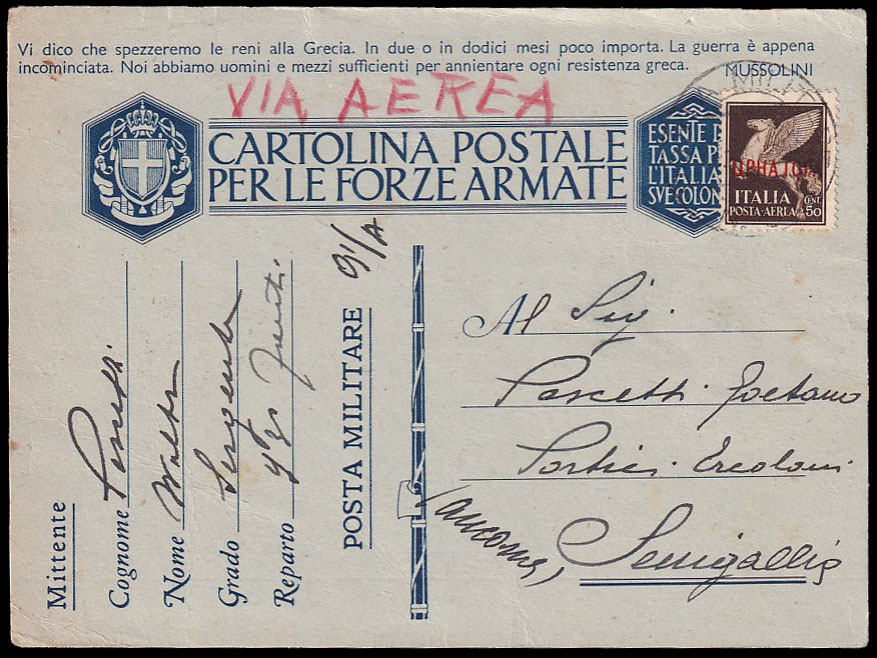 Vi dico che spezzeremo le reni alla Grecia. In due o in dodici mesi poco importa. La guerra è appena
incominciata. Noi abbiamo uomini e mezzi sufficienti per annientare ogni resistenza greca. MUSSOLINI
VIA AEREA
CARTOLINA POSTALE
PER LE FORZE ARMATE
ESENTE D
TASSA P
L'ITALIA
SVE COLON
ITALIA
POSTA-AEREA
CENT.
50
Mittente
Cognome
Nome Walter
Grado Sergente
Reparto
POSTA MILITARE 91/A
Al Sig.
Pascetti Gaetano
Portici Ercolani
(Ancona)
Senigallia